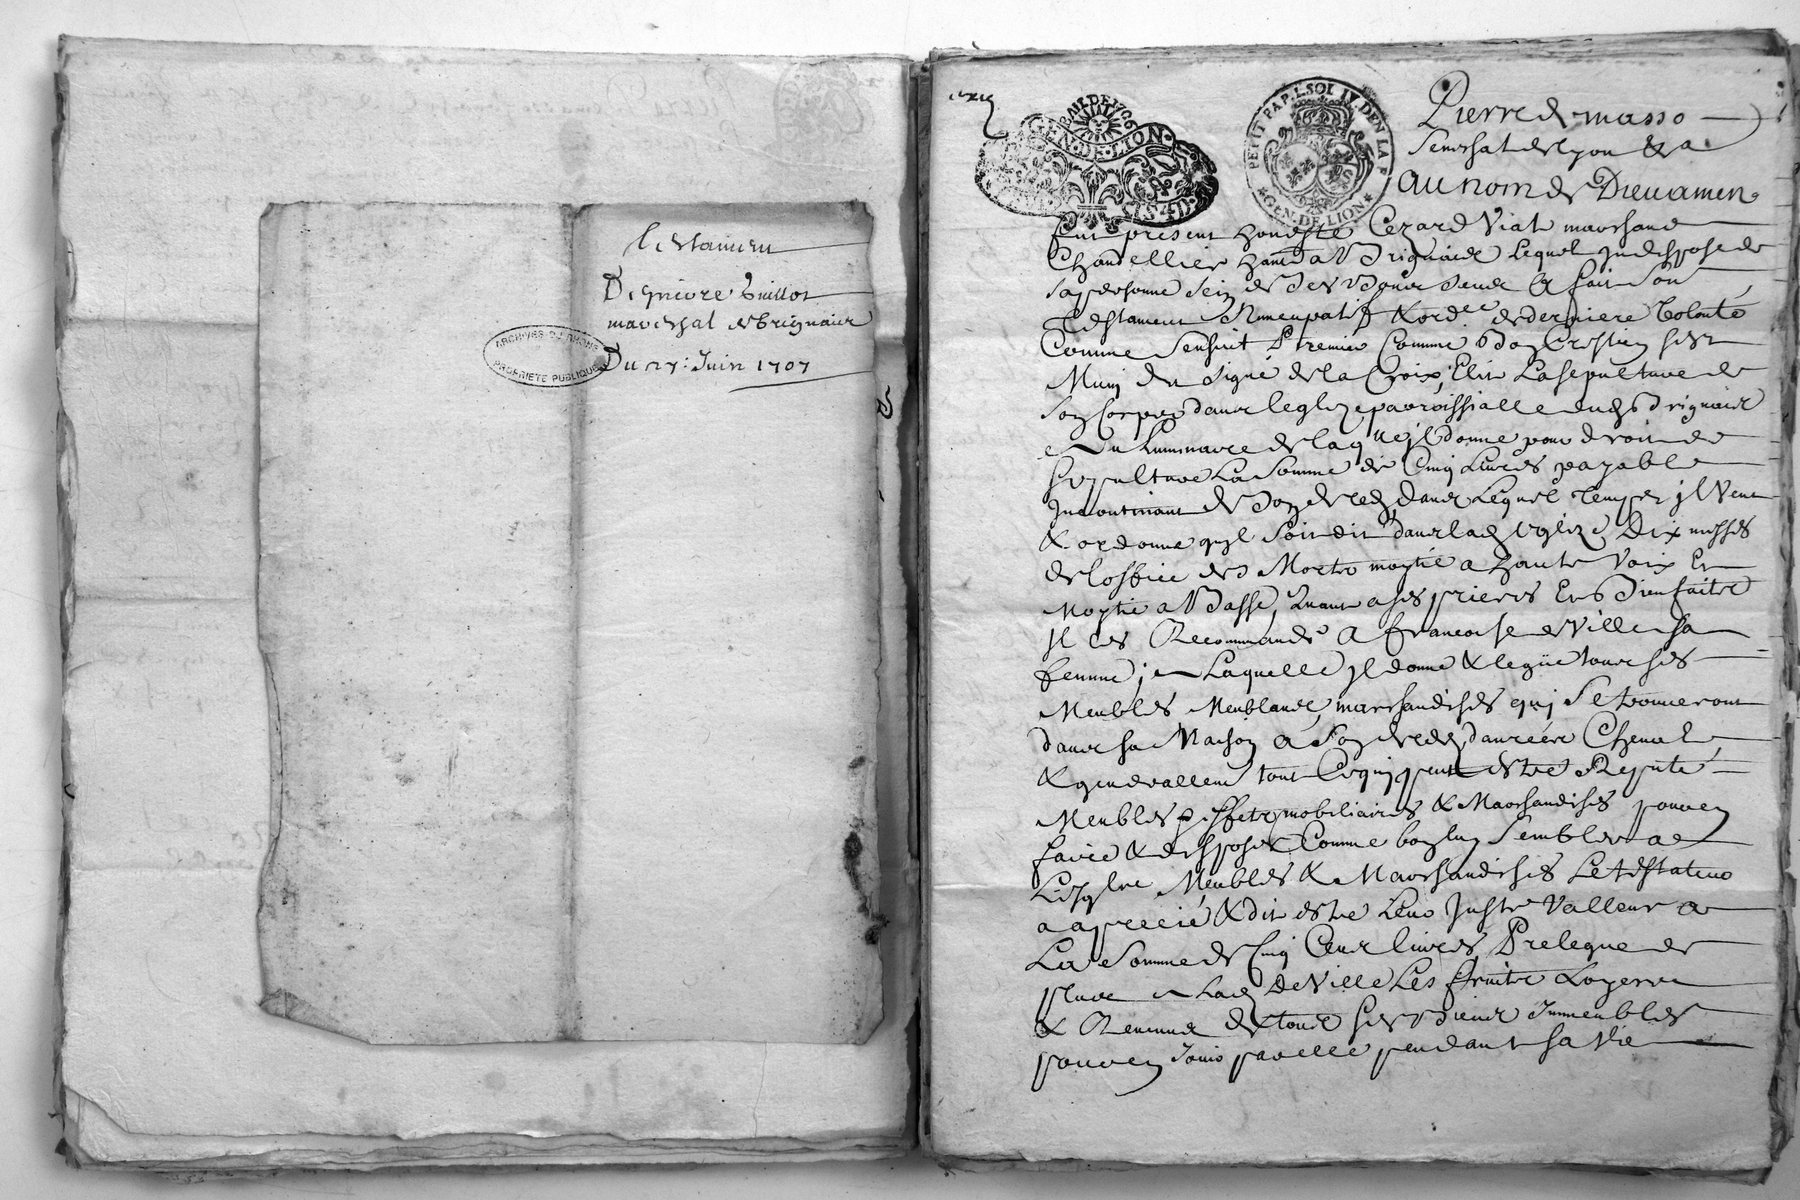 Testament
De Grivore Guillot
mareschal de Brignais
Du 27: Juin 1707
ARCHIVES DU RHONE
PROPRIETE PUBLIQUE
BAIL DE 1706
GEN·DE·LION·
PETIT PAP. 1.SOL IV. DEN LA F
GEN·DE·LION
Pierre de masso
Seneschal de Lyon &a
Au nom de Dieu amen
fut present honeste Cezard Viat marchand
Chandellier hant a Brignaids Lequel Indispose de
sa personne sein de ses bons sens a fait son
testament Nuncupatif & ordce de derniere Volonté
Comme sensuit Premier Comme bon Crestien sest
Muni du signe de la Croix, Elit La sepulture de
son Corps dans leglize parroissialle dud Brignais
Au Luminaire de laqlle jl donne pour droit de
sepulture La somme de Cinq Livres payable
Incontinant de son deceds, dans Lequel temps jl Veut
& ordonne qujl soit dit dans lad Eglize, Dix messes
de loffice des Morts moytié a haute Voix Et
Moytie a Basse, Quant a ses prieres Et Bienfaits
Jl les Recommande A francoise deville sa
femme, a Laquelle jl donne & legüe tous ses
Meubles Meublans, marchandises quj se trouveront
dans sa Maison a son deceds, danrées Cheval
& generallemt tout Ce quj peut estre Reputé
Meubles effets mobiliaires & Marchandises pour en
faire & disposer Comme bon luy semblera
Lesqls Meubles & Marchandises Le testateur
a aprecié & dit estre Leur Juste Valleur a
La somme de Cinq Cent livres, Prelegue de
plus a Lad DeVille Les fruits Loyers
& Revenus de tous ses biens Immeubles
pour en Jouir par elle pendant sa Vie